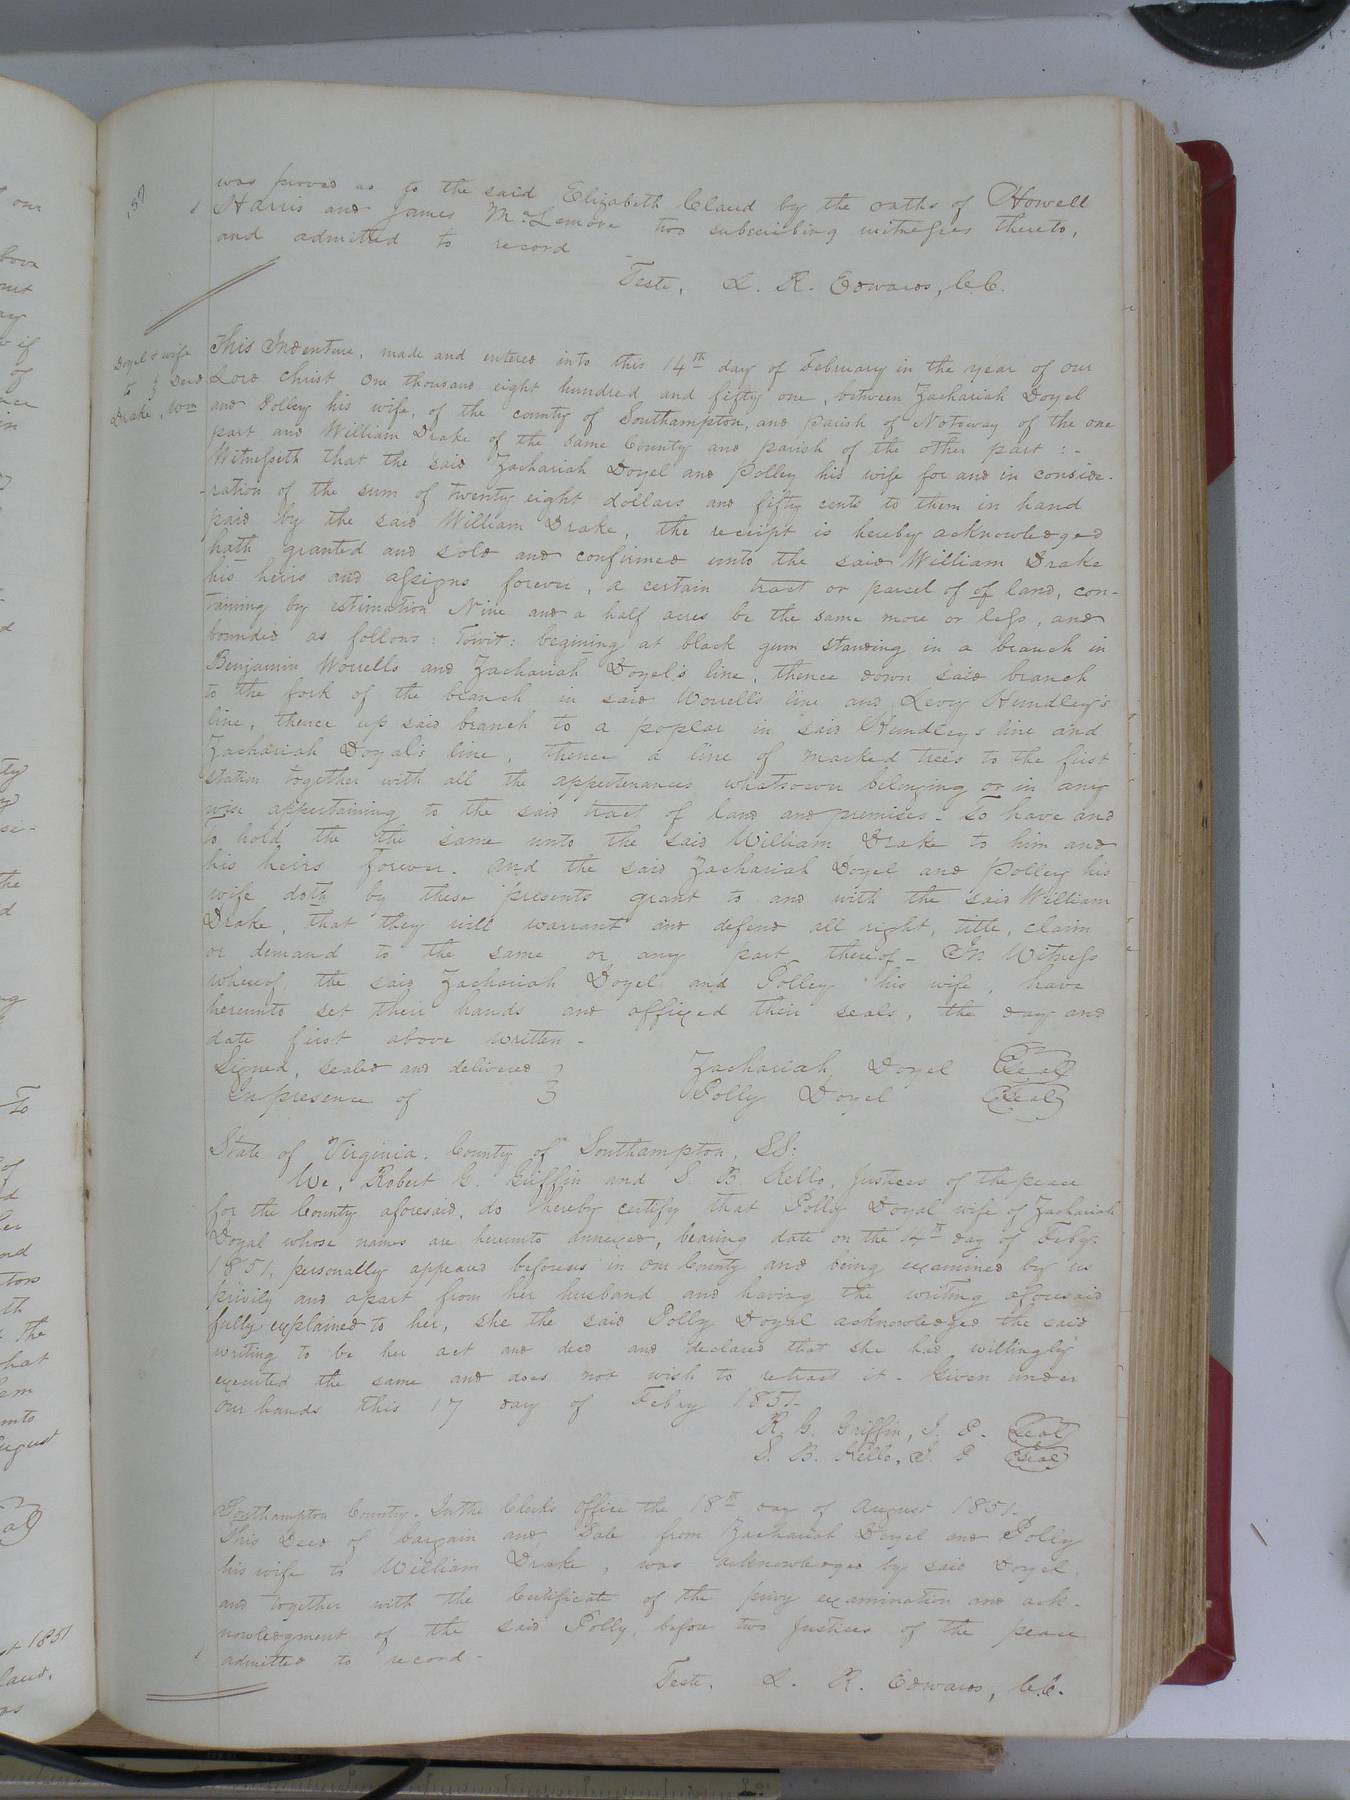 157
was proved as to the said Elizabeth Claud by the oaths of Howell
Harris and James McLemore two subscribing witnesses thereto,
and admitted to record
Teste, L. R. Edwards, C.C.
Doyel & wife
to } Deed
Drake, Wm
This Indenture, made and entered into this 14th day of February in the year of our
Lord Christ One thousand eight hundred and fifty one, between Zachariah Doyel
and Polley his wife, of the county of Southampton, and parish of Notoway of the one
part and William Drake of the same County and parish of the other part :-
Witnesseth that the said Zachariah Doyel and Polley his wife for and in conside-
-ration of the sum of twenty eight dollars and fifty cents to them in hand
paid by the said William Drake, the receipt is hereby acknowledged
hath granted and sold and confirmed unto the said William Drake
his heirs and assigns forever, a certain tract or parcel of of land, con-
taining by estimation Nine and a half acres be the same more or less, and
bounded as follows: Towit: begining at black gum standing in a branch in
Benjamin Worrells and Zachariah Doyel's line, thence down said branch
to the fork of the branch in said Worrells line and Levy Hundley's
line, thence up said branch to a poplar in said Hundleys line and
Zachariah Doyal's line, thence a line of marked trees to the first
station together with all the appertenances whatsoever belonging or in any
wise appertaining to the said tract of land and premises - To have and
to hold the the same unto the said William Drake to him and
his heirs forever. And the said Zachariah Doyel and Polley his
wife doth by these presents grant to and with the said William
Drake, that they will warrant and defend all right, title, claim
or demand to the same or any part thereof - In Witness
whereof, the said Zachariah Doyel and Polley his wife, have
hereunto set their hands and affixed their seals, the day and
date first above written -
Signed, sealed and delivered } Zachariah Doyel Seal
In presence of } Polly Doyel Seal
State of Virginia. County of Southampton, SS:
We, Robert G. Griffin and S. B. Kello, Justices of the peace
for the County aforesaid, do hereby certify that Polly Doyal wife of Zachariah
Doyal whose names are hereunto annexed, bearing date on the 14th day of Feby.
1851, personally appeared before us in our County and being examined by us
privily and apart from her husband and having the writing aforesaid
fully explained to her, she the said Polly Doyal acknowledged the said
writing to be her act and deed and declared that she had willingly
executed the same and does not wish to retract it - Given under
our hands this 17 day of Febry 1851-
R. G. Griffin, J. P. Seal
S. B. Kello, J. P Seal
Southampton County. In the Clerks Office the 18th day of August 1851-
This Deed of bargain and Sale from Zachariah Doyel and Polly
his wife to William Drake, was acknowledged by said Doyel,
and together with the Certificate of the privy examination and ack-
nowledgment of the said Polly, before two Justices of the peace
admitted to record-
Teste, L. R. Edwards, C.C.